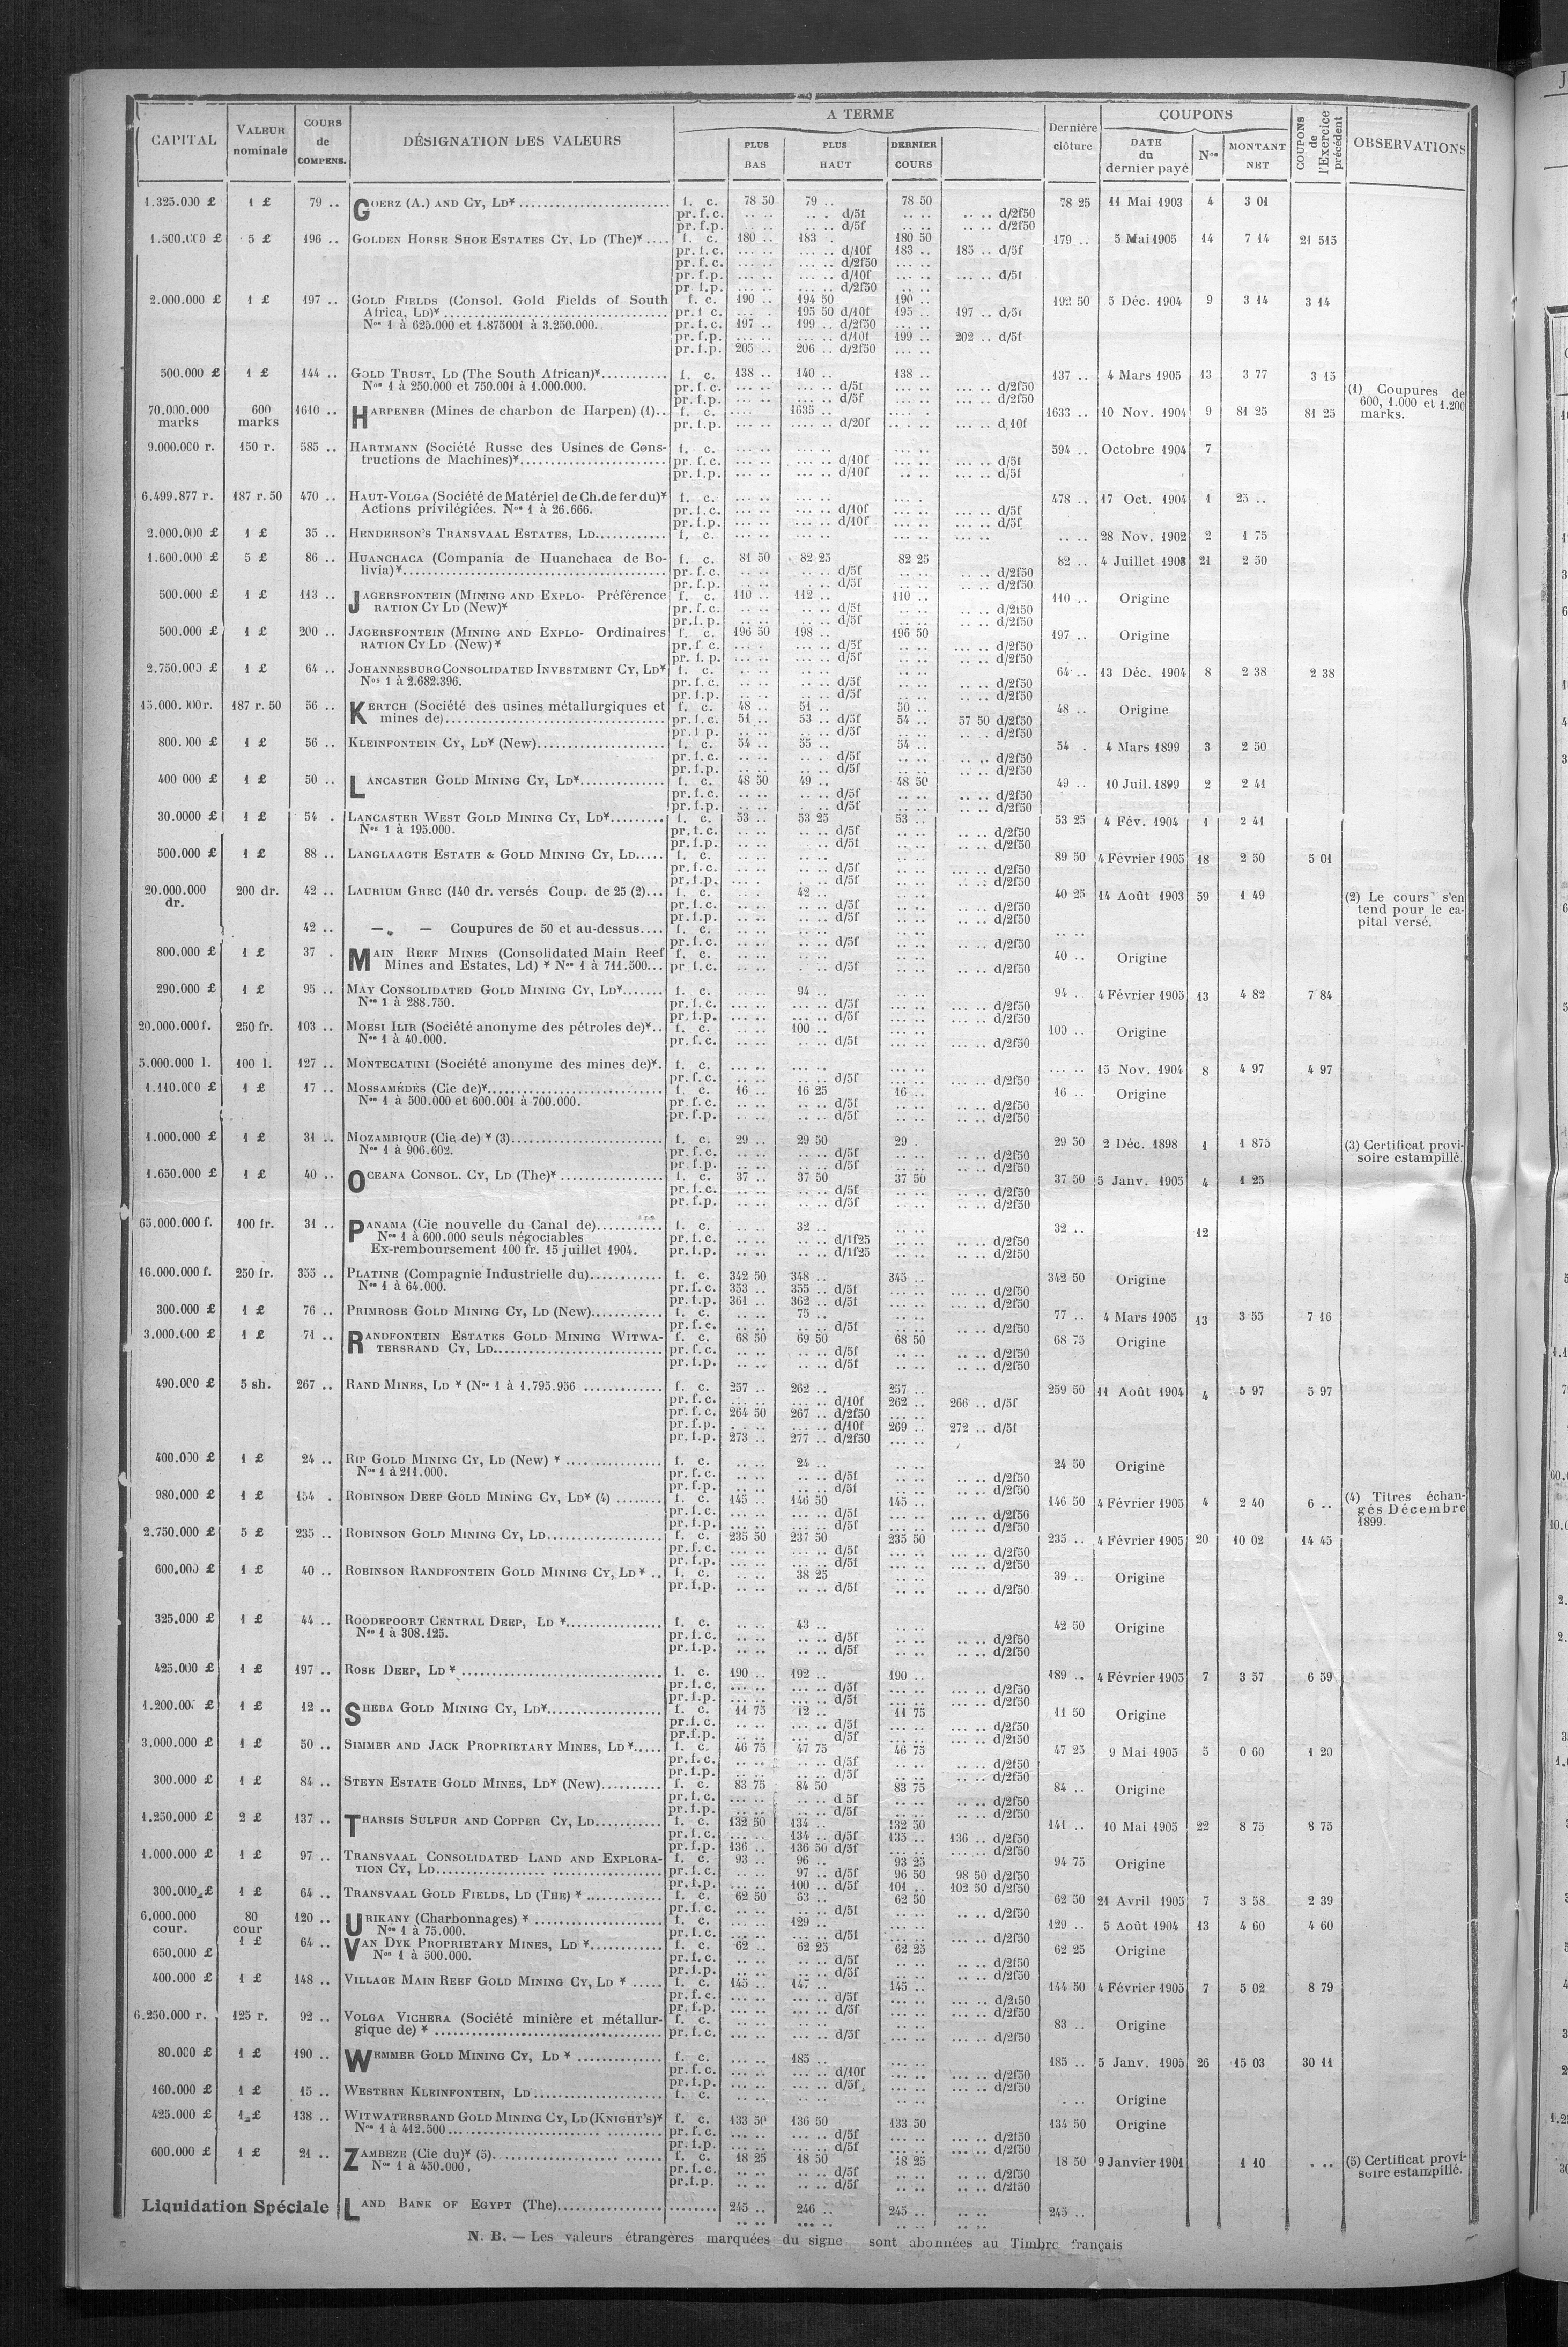 CAPITAL | VALEUR nominale | COURS de COMPENS. | DÉSIGNATION DES VALEURS | A TERME | PLUS BAS | PLUS HAUT | DERNIER COURS | Dernière clôture | COUPONS | DATE du dernier payé | Nos | MONTANT NET | COUPONS de l'Exercice précédent | OBSERVATIONS
1.325.000 £ | 1 £ | 79 .. | GOERZ (A.) AND CY, LD* | f. c. | 78 50 | 79 .. | 78 50 | 78 25 | 11 Mai 1903 | 4 | 3 01
pr. f. c. d/5f d/2f50
pr. f. p. d/5f d/2f50
1.500.000 £ | 5 £ | 196 .. | GOLDEN HORSE SHOE ESTATES CY, LD (The)* | f. c. | 180 .. | 183 . | 180 50 | 179 .. | 5 Mai 1905 | 14 | 7 14 | 21 515
pr. f. c. d/10f 183 .. 185 .. d/5f
pr. f. c. d/2f50
pr. f. p. d/10f d/5f
pr. f. p. d/2f50
2.000.000 £ | 1 £ | 197 .. | GOLD FIELDS (Consol. Gold Fields of South | f. c. | 190 .. | 194 50 | 190 .. | 192 50 | 5 Déc. 1904 | 9 | 3 14 | 3 14
Africa, LD)* pr. f. c. 195 50 d/10f 195 .. 197 .. d/5f
Nos 1 à 625.000 et 1.875001 à 3.250.000. pr. f. c. 197 .. 199 .. d/2f50
pr. f. p. d/10f 199 .. 202 .. d/5f
pr. f. p. 205 .. 206 .. d/2f50
500.000 £ | 1 £ | 144 .. | GOLD TRUST, LD (The South African)* | f. c. | 138 .. | 140 .. | 138 .. | 137 .. | 4 Mars 1905 | 13 | 3 77 | 3 15
Nos 1 à 250.000 et 750.001 à 1.000.000. pr. f. c. d/5f d/2f50
pr. f. p. d/5f d/2f50
(1) Coupures de 600, 1.000 et 1.200 marks.
70.000.000 marks | 600 marks | 1610 .. | HARPENER (Mines de charbon de Harpen) (1) | f. c. | 1635 .. | 1633 .. | 10 Nov. 1904 | 9 | 81 25 | 81 25
pr. f. p. d/20f d/10f
9.000.000 r. | 150 r. | 585 .. | HARTMANN (Société Russe des Usines de Cons- | f. c. | 594 .. | Octobre 1904 | 7
tructions de Machines)* pr. f. c. d/10f d/5f
pr. f. p. d/10f d/5f
6.499.877 r. | 187 r. 50 | 470 .. | HAUT-VOLGA (Société de Matériel de Ch. de fer du)* | f. c. | 478 .. | 17 Oct. 1904 | 1 | 25 ..
Actions privilégiées. Nos 1 à 26.666. pr. f. c. d/10f d/5f
pr. f. p. d/10f d/5f
2.000.000 £ | 1 £ | 35 .. | HENDERSON'S TRANSVAAL ESTATES, LD | f. c. | 28 Nov. 1902 | 2 | 1 75
1.600.000 £ | 5 £ | 86 .. | HUANCHACA (Compania de Huanchaca de Bo- | f. c. | 81 50 | 82 25 | 82 25 | 82 .. | 4 Juillet 1903 | 21 | 2 50
livia)* pr. f. c. d/5f d/2f50
pr. f. p. d/5f d/2f50
500.000 £ | 1 £ | 113 .. | JAGERSFONTEIN (MINING AND EXPLO- Préférence | f. c. | 110 .. | 112 .. | 110 .. | 110 .. | Origine
RATION CY LD (New)* pr. f. c. d/5f d/2f50
pr. f. p. d/5f d/2f50
500.000 £ | 1 £ | 200 .. | JAGERSFONTEIN (MINING AND EXPLO- Ordinaires | f. c. | 196 50 | 198 .. | 196 50 | 197 .. | Origine
RATION CY LD (New)* pr. f. c. d/5f d/2f50
pr. f. p. d/5f d/2f50
2.750.000 £ | 1 £ | 64 .. | JOHANNESBURG CONSOLIDATED INVESTMENT CY, LD* | f. c. | 64 .. | 13 Déc. 1904 | 8 | 2 38 | 2 38
Nos 1 à 2.682.396. pr. f. c. d/5f d/2f50
pr. f. p. d/5f d/2f50
15.000.000 r. | 187 r. 50 | 56 .. | KERTCH (Société des usines métallurgiques et | f. c. | 48 .. | 51 .. | 50 .. | 48 .. | Origine
mines de) pr. f. c. 51 .. 53 .. d/5f 54 .. 57 50 d/2f50
pr. f. p. d/5f d/2f50
800.000 £ | 1 £ | 56 .. | KLEINFONTEIN CY, LD* (New) | f. c. | 54 .. | 55 .. | 54 .. | 54 . | 4 Mars 1899 | 3 | 2 50
pr. f. c. d/5f d/2f50
pr. f. p. d/5f d/2f50
400 000 £ | 1 £ | 50 .. | LANCASTER GOLD MINING CY, LD* | f. c. | 48 50 | 49 .. | 48 50 | 49 .. | 10 Juil. 1899 | 2 | 2 41
pr. f. c. d/5f d/2f50
pr. f. p. d/5f d/2f50
30.0000 £ | 1 £ | 54 . | LANCASTER WEST GOLD MINING CY, LD* | f. c. | 53 .. | 53 25 | 53 .. | 53 25 | 4 Fév. 1904 | 1 | 2 41
Nos 1 à 195.000. pr. f. c. d/5f d/2f50
pr. f. p. d/5f d/2f50
500.000 £ | 1 £ | 88 .. | LANGLAAGTE ESTATE & GOLD MINING CY, LD | f. c. | 89 50 | 4 Février 1905 | 18 | 2 50 | 5 01
pr. f. c. d/5f d/2f50
pr. f. p. d/5f d/2f50
20.000.000 dr. | 200 dr. | 42 .. | LAURIUM GREC (140 dr. versés Coup. de 25 (2) | f. c. | 42 .. | 40 25 | 14 Août 1903 | 59 | 1 49 | (2) Le cours s'entend pour le capital versé.
pr. f. c. d/5f d/2f50
pr. f. p. d/5f d/2f50
42 .. | — — Coupures de 50 et au-dessus | f. c.
pr. f. c. d/5f d/2f50
800.000 £ | 1 £ | 37 . | MAIN REEF MINES (Consolidated Main Reef | f. c. | 40 .. | Origine
Mines and Estates, Ld) * Nos 1 à 711.500 pr. f. c. d/5f d/2f50
290.000 £ | 1 £ | 95 .. | MAY CONSOLIDATED GOLD MINING CY, LD* | f. c. | 94 .. | 94 . | 4 Février 1905 | 13 | 4 82 | 7 84
Nos 1 à 288.750. pr. f. c. d/5f d/2f50
pr. f. p. d/5f d/2f50
20.000.000 f. | 250 fr. | 103 .. | MOESI ILIR (Société anonyme des pétroles de)* | f. c. | 100 .. | 100 .. | Origine
Nos 1 à 40.000. pr. f. c. d/5f d/2f50
5.000.000 l. | 100 l. | 127 .. | MONTECATINI (Société anonyme des mines de)* | f. c. | 15 Nov. 1904 | 8 | 4 97 | 4 97
pr. f. c. d/5f d/2f50
1.110.000 £ | 1 £ | 17 .. | MOSSAMÉDÈS (Cie de)* | f. c. | 16 .. | 16 25 | 16 .. | 16 .. | Origine
Nos 1 à 500.000 et 600.001 à 700.000. pr. f. c. d/5f d/2f50
pr. f. p. d/5f d/2f50
1.000.000 £ | 1 £ | 31 .. | MOZAMBIQUE (Cie de) * (3) | f. c. | 29 .. | 29 50 | 29 . | 29 50 | 2 Déc. 1898 | 1 | 1 875 | (3) Certificat provisoire estampillé.
Nos 1 à 906.602. pr. f. c. d/5f d/2f50
pr. f. p. d/5f d/2f50
1.650.000 £ | 1 £ | 40 .. | OCEANA CONSOL. CY, LD (The)* | f. c. | 37 .. | 37 50 | 37 50 | 37 50 | 5 Janv. 1905 | 4 | 1 25
pr. f. c. d/5f d/2f50
pr. f. p. d/5f d/2f50
65.000.000 f. | 100 fr. | 31 .. | PANAMA (Cie nouvelle du Canal de) | f. c. | 32 .. | 32 .. | 12
Nos 1 à 600.000 seuls négociables pr. f. c. d/1f25 d/2f50
Ex-remboursement 100 fr. 15 juillet 1904. pr. f. p. d/1f25 d/2f50
16.000.000 f. | 250 fr. | 355 .. | PLATINE (Compagnie Industrielle du) | f. c. | 342 50 | 348 .. | 345 .. | 342 50 | Origine
Nos 1 à 64.000. pr. f. c. 353 .. 355 .. d/5f d/2f50
pr. f. p. 361 .. 362 .. d/5f d/2f50
300.000 £ | 1 £ | 76 .. | PRIMROSE GOLD MINING CY, LD (New) | f. c. | 75 .. | 77 .. | 4 Mars 1905 | 13 | 3 55 | 7 16
pr. f. c. d/5f d/2f50
3.000.000 £ | 1 £ | 71 .. | RANDFONTEIN ESTATES GOLD MINING WITWA- | f. c. | 68 50 | 69 50 | 68 50 | 68 75 | Origine
TERSRAND CY, LD pr. f. c. d/5f d/2f50
pr. f. p. d/5f d/2f50
490.000 £ | 5 sh. | 267 .. | RAND MINES, LD * (Nos 1 à 1.795.956 | f. c. | 257 .. | 262 .. | 257 .. | 259 50 | 11 Août 1904 | 4 | 5 97 | 5 97
pr. f. c. d/10f 262 .. 266 .. d/5f
pr. f. c. 264 50 267 .. d/2f50
pr. f. p. d/10f 269 .. 272 .. d/5f
pr. f. p. 273 .. 277 .. d/2f50
400.000 £ | 1 £ | 24 .. | RIP GOLD MINING CY, LD (New) * | f. c. | 24 .. | 24 50 | Origine
Nos 1 à 211.000. pr. f. c. d/5f d/2f50
pr. f. p. d/5f d/2f50
980.000 £ | 1 £ | 154 . | ROBINSON DEEP GOLD MINING CY, LD* (4) | f. c. | 145 .. | 146 50 | 145 .. | 146 50 | 4 Février 1905 | 4 | 2 40 | 6 .. | (4) Titres échangés Décembre 1899.
pr. f. c. d/5f d/2f50
pr. f. p. d/5f d/2f50
2.750.000 £ | 5 £ | 235 .. | ROBINSON GOLD MINING CY, LD | f. c. | 235 50 | 237 50 | 235 50 | 235 .. | 4 Février 1905 | 20 | 10 02 | 14 45
pr. f. c. d/5f d/2f50
pr. f. p. d/5f d/2f50
600.000 £ | 1 £ | 40 .. | ROBINSON RANDFONTEIN GOLD MINING CY, LD * | f. c. | 38 25 | 39 .. | Origine
pr. f. p. d/5f d/2f50
325.000 £ | 1 £ | 44 .. | ROODEPOORT CENTRAL DEEP, LD * | f. c. | 43 .. | 42 50 | Origine
Nos 1 à 308.125. pr. f. c. d/5f d/2f50
pr. f. p. d/5f d/2f50
425.000 £ | 1 £ | 197 .. | ROSE DEEP, LD * | f. c. | 190 .. | 192 .. | 190 .. | 189 .. | 4 Février 1905 | 7 | 3 57 | 6 59
pr. f. c. d/5f d/2f50
pr. f. p. d/5f d/2f50
1.200.00 £ | 1 £ | 12 .. | SHEBA GOLD MINING CY, LD* | f. c. | 11 75 | 12 .. | 11 75 | 11 50 | Origine
pr. f. c. d/5f d/2f50
pr. f. p. d/5f d/2f50
3.000.000 £ | 1 £ | 50 .. | SIMMER AND JACK PROPRIETARY MINES, LD * | f. c. | 46 75 | 47 75 | 46 75 | 47 25 | 9 Mai 1905 | 5 | 0 60 | 1 20
pr. f. c. d/5f d/2f50
pr. f. p. d/5f d/2f50
300.000 £ | 1 £ | 84 .. | STEYN ESTATE GOLD MINES, LD* (New) | f. c. | 83 75 | 84 50 | 83 75 | 84 .. | Origine
pr. f. c. d 5f d/2f50
pr. f. p. d/5f d/2f50
1.250.000 £ | 2 £ | 137 .. | THARSIS SULFUR AND COPPER CY, LD | f. c. | 132 50 | 134 .. | 132 50 | 141 .. | 10 Mai 1905 | 22 | 8 75 | 8 75
pr. f. c. 134 .. d/5f 135 .. 136 .. d/2f50
pr. f. p. 136 .. 136 50 d/5f d/2f50
1.000.000 £ | 1 £ | 97 .. | TRANSVAAL CONSOLIDATED LAND AND EXPLORA- | f. c. | 93 .. | 96 .. | 93 25 | 94 75 | Origine
TION CY, LD pr. f. c. 97 .. d/5f 96 50 98 50 d/2f50
pr. f. p. 100 .. d/5f 101 .. 102 50 d/2f50
300.000 £ | 1 £ | 64 .. | TRANSVAAL GOLD FIELDS, LD (THE) * | f. c. | 62 50 | 63 .. | 62 50 | 62 50 | 21 Avril 1905 | 7 | 3 58 | 2 39
pr. f. c. d/5f d/2f50
6.000.000 cour. | 80 cour | 120 .. | URIKANY (Charbonnages) * | f. c. | 129 .. | 129 .. | 5 Août 1904 | 13 | 4 60 | 4 60
Nos 1 à 75.000. pr. f. c. d/5f d/2f50
650.000 £ | 1 £ | 64 .. | VAN DYK PROPRIETARY MINES, LD * | f. c. | 62 .. | 62 25 | 62 25 | 62 25 | Origine
Nos 1 à 500.000. pr. f. c. d/5f d/2f50
pr. f. p. d/5f d/2f50
400.000 £ | 1 £ | 148 .. | VILLAGE MAIN REEF GOLD MINING CY, LD * | f. c. | 145 .. | 147 .. | 145 .. | 144 50 | 4 Février 1905 | 7 | 5 02 | 8 79
pr. f. c. d/5f d/2f50
pr. f. p. d/5f d/2f50
6.250.000 r. | 125 r. | 92 .. | VOLGA VICHERA (Société minière et métallur- | f. c. | 83 .. | Origine
gique de) * pr. f. c. d/5f d/2f50
80.000 £ | 1 £ | 190 .. | WEMMER GOLD MINING CY, LD * | f. c. | 185 .. | 185 .. | 5 Janv. 1905 | 26 | 15 03 | 30 11
pr. f. c. d/10f d/2f50
pr. f. p. d/5f d/2f50
160.000 £ | 1 £ | 15 .. | WESTERN KLEINFONTEIN, LD | f. c. | Origine
425.000 £ | 1 £ | 138 .. | WITWATERSRAND GOLD MINING CY, LD (KNIGHT'S)* | f. c. | 133 50 | 136 50 | 133 50 | 134 50 | Origine
Nos 1 à 412.500 pr. f. c. d/5f d/2f50
pr. f. p. d/5f d/2f50
600.000 £ | 1 £ | 21 .. | ZAMBEZE (Cie du)* (5) | f. c. | 18 25 | 18 50 | 18 25 | 18 50 | 9 Janvier 1901 | 1 10 | (5) Certificat provisoire estampillé.
Nos 1 à 450.000, pr. f. c. d/5f d/2f50
pr. f. p. d/5f d/2f50
Liquidation Spéciale | LAND BANK OF EGYPT (The) | 245 .. | 246 .. | 245 .. | 245 ..
N. B. — Les valeurs étrangères marquées du signe sont abonnées au Timbre français